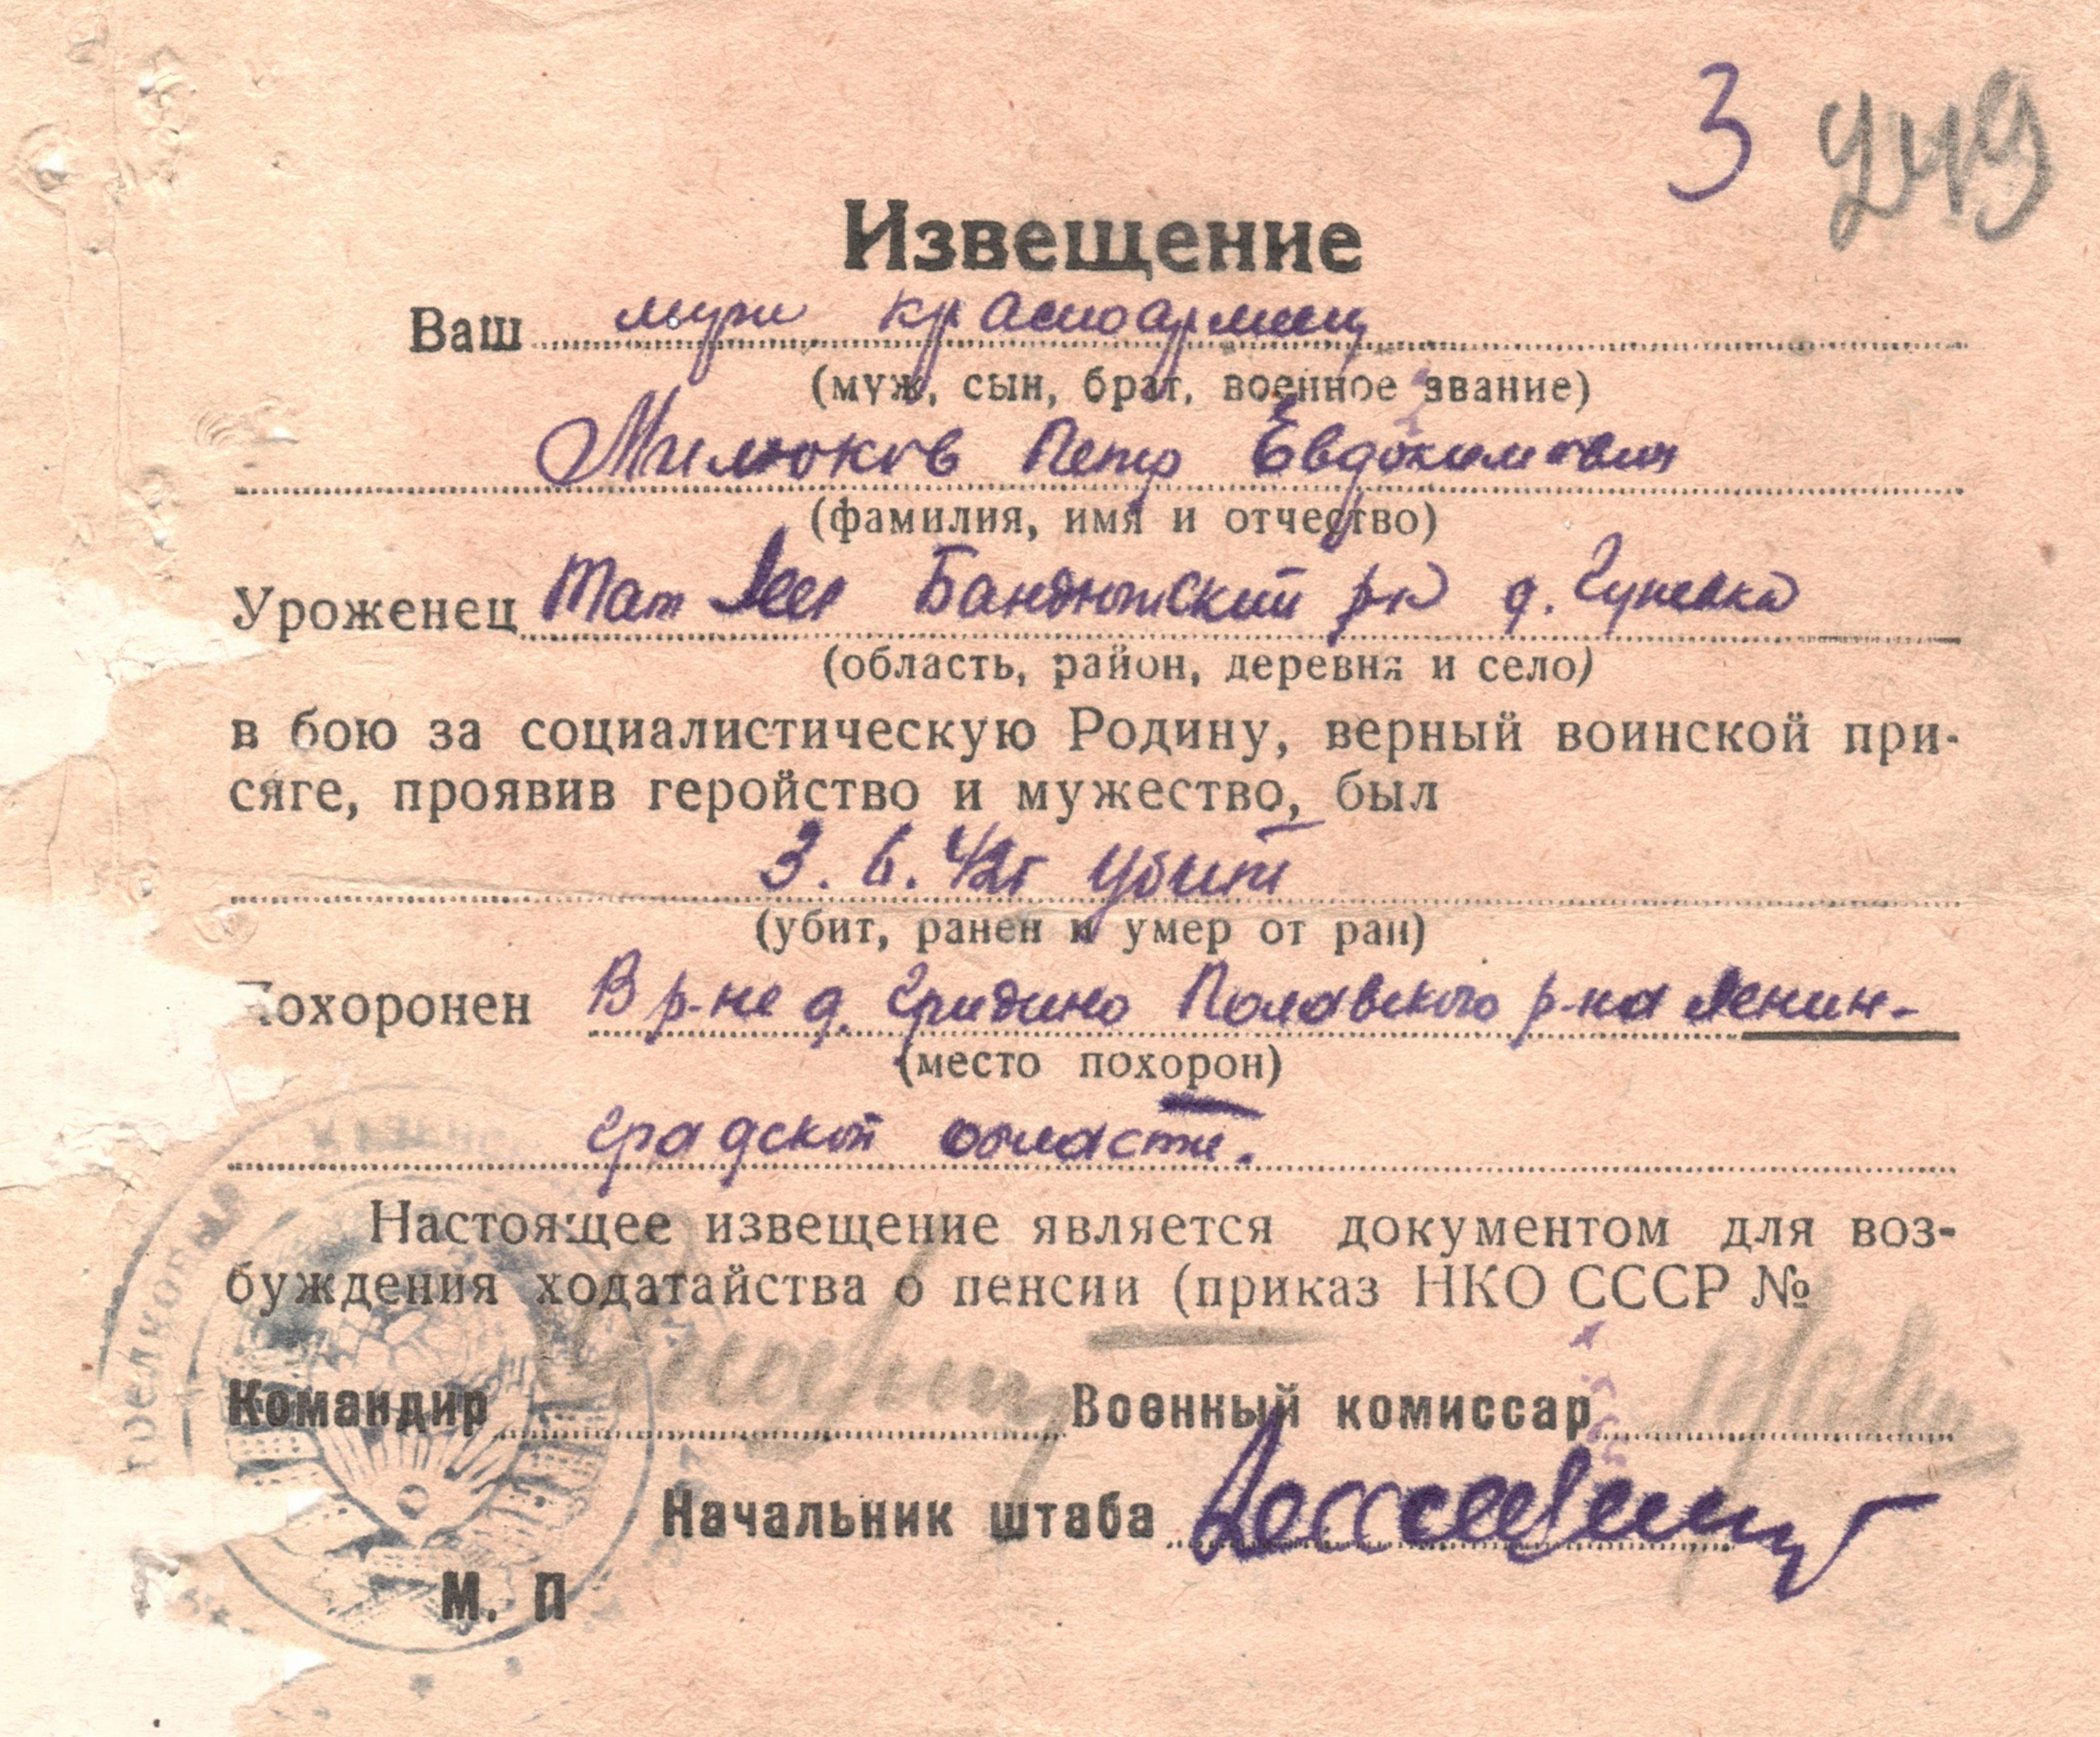 3 249
Извещение
Ваш муж красноармеец
(муж, сын, брат, военное звание)
Милюков Петр Евдокимович
(фамилия, имя и отчество)
Уроженец Тат Бандюжский р-н д. Гуневка
(область, район, деревня и село)
в бою за социалистическую Родину, верный воинской при-
сяге, проявив геройство и мужество, был
3.6.42г убит
(убит, ранен и умер от ран)
Похоронен В р-не д. Гридино Полавского р-на Ленин-
(место похорон)
градской области.
Настоящее извещение является документом для воз-
буждения ходатайства о пенсии (приказ НКО СССР №
Командир Военный комиссар
Начальник штаба
М. П